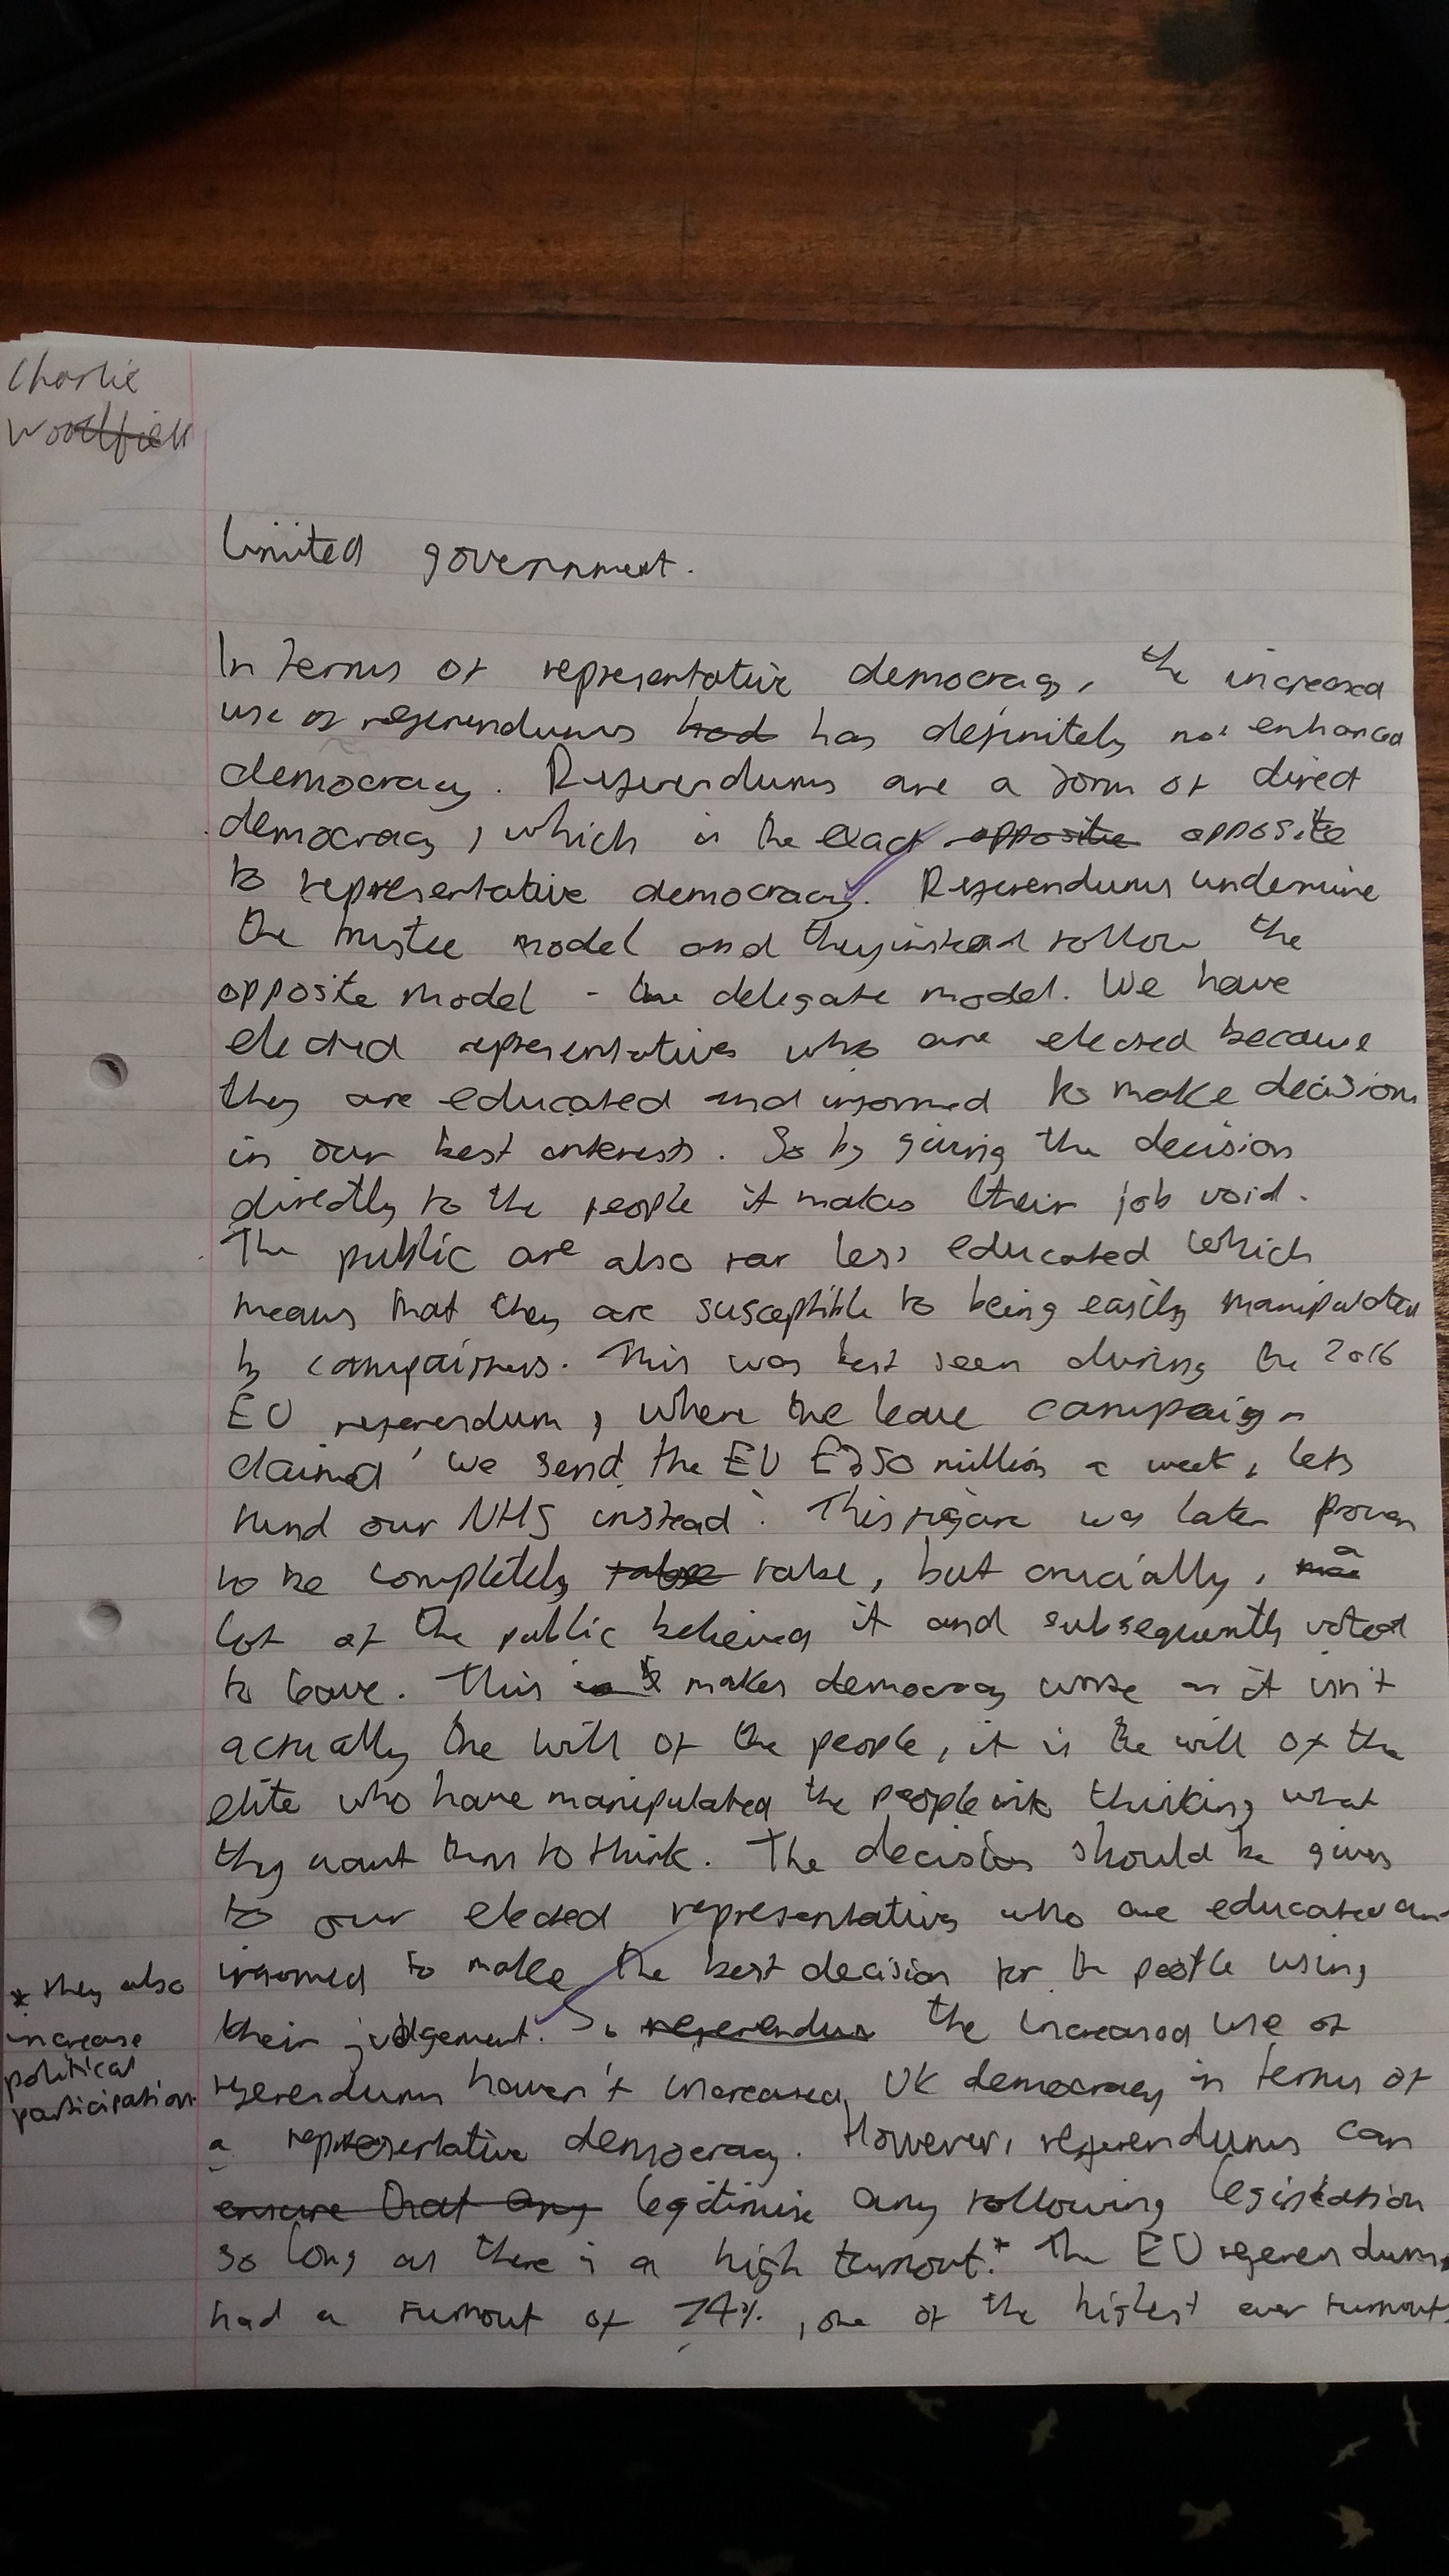 Charlie
limited government.
In terms of representative democracy, the increased
use of referendums had has definitely not enhanced
democracy. Referendums are a form of direct
democracy, which is the exact opposite opposite
to representative democracy. Referendums undermine
the trustee model and they instead follow the
opposite model - the delegate model. We have
elected representatives who are elected because
they are educated and informed to make decisions
in our best interests. So by giving the decision
directly to the people it makes their job void.
The public are also far less educated which
means that they are susceptible to being easily manipulated
by campaigners. This was best seen during the 2016
EU referendum, where the leave campaign
claimed 'we send the EU £350 million a week, lets
fund our NHS instead'. This figure was later proven
to be completely false false, but crucially, a
lot of the public believed it and subsequently voted
to leave. This is makes democracy worse as it isn't
actually the will of the people, it is the will of the
elite who have manipulated the people into thinking what
they want them to think. The decision should be given
to our elected representatives who are educated and
informed to make the best decision for the people using
their judgement. So referendum the increased use of
referendums haven't increased UK democracy in terms of
a representative democracy. However, referendums can
ensure that any legitimise any following legislation
so long as there is a high turnout.* The EU referendum
had a turnout of 74%, one of the highest ever turnouts
* they also
increase
political
participation.